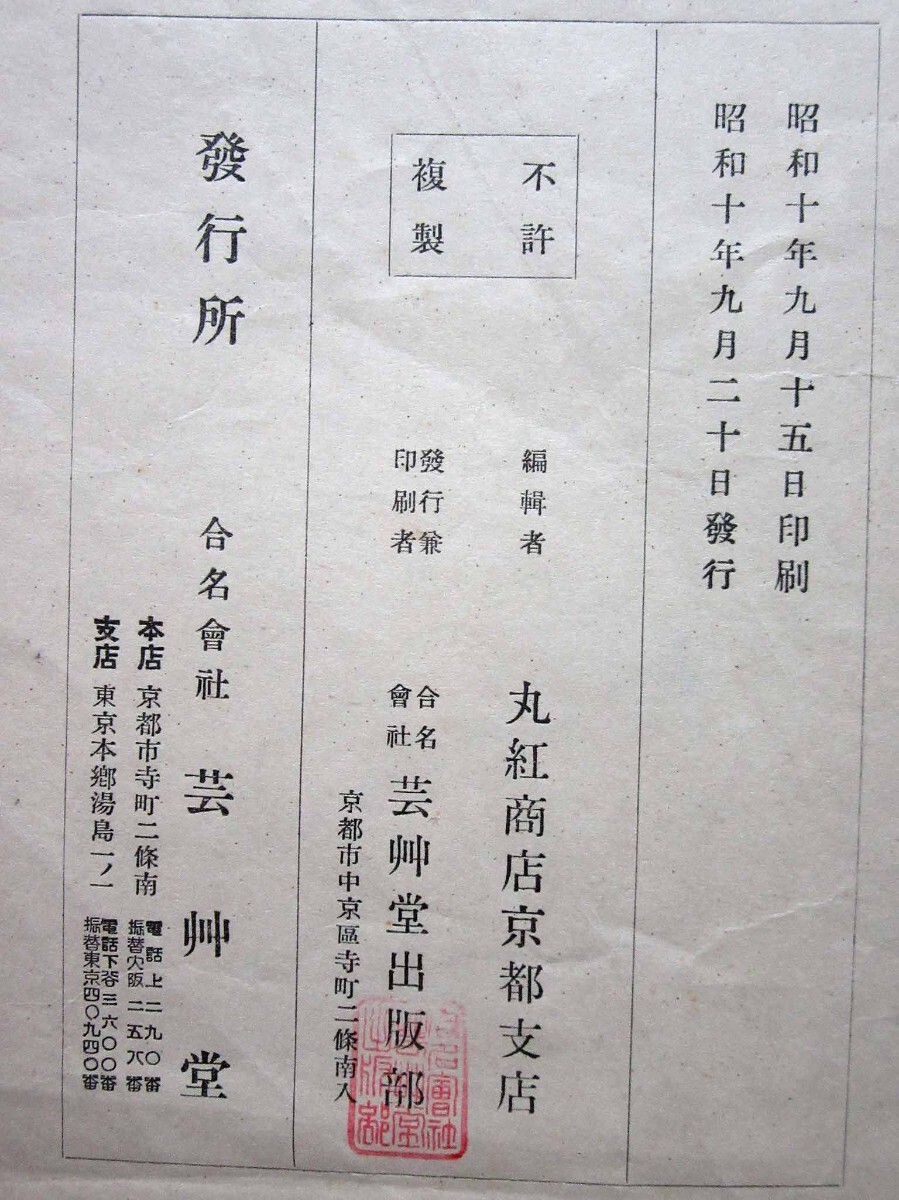 昭和十年九月十五日印刷
昭和十年九月二十日發行
不許
複製
編輯者
丸紅商店京都支店
發行兼
印刷者
合名
會社
芸艸堂出版部
京都市中京區寺町二條南入
發行所
合名會社
芸艸堂
本店 京都市寺町二條南
電話上二九〇番
振替大阪二五八番
支店 東京本鄕湯島一ノ一
電話下谷三六〇〇番
振替東京四〇九四〇番
合名會社
芸艸堂
出版部